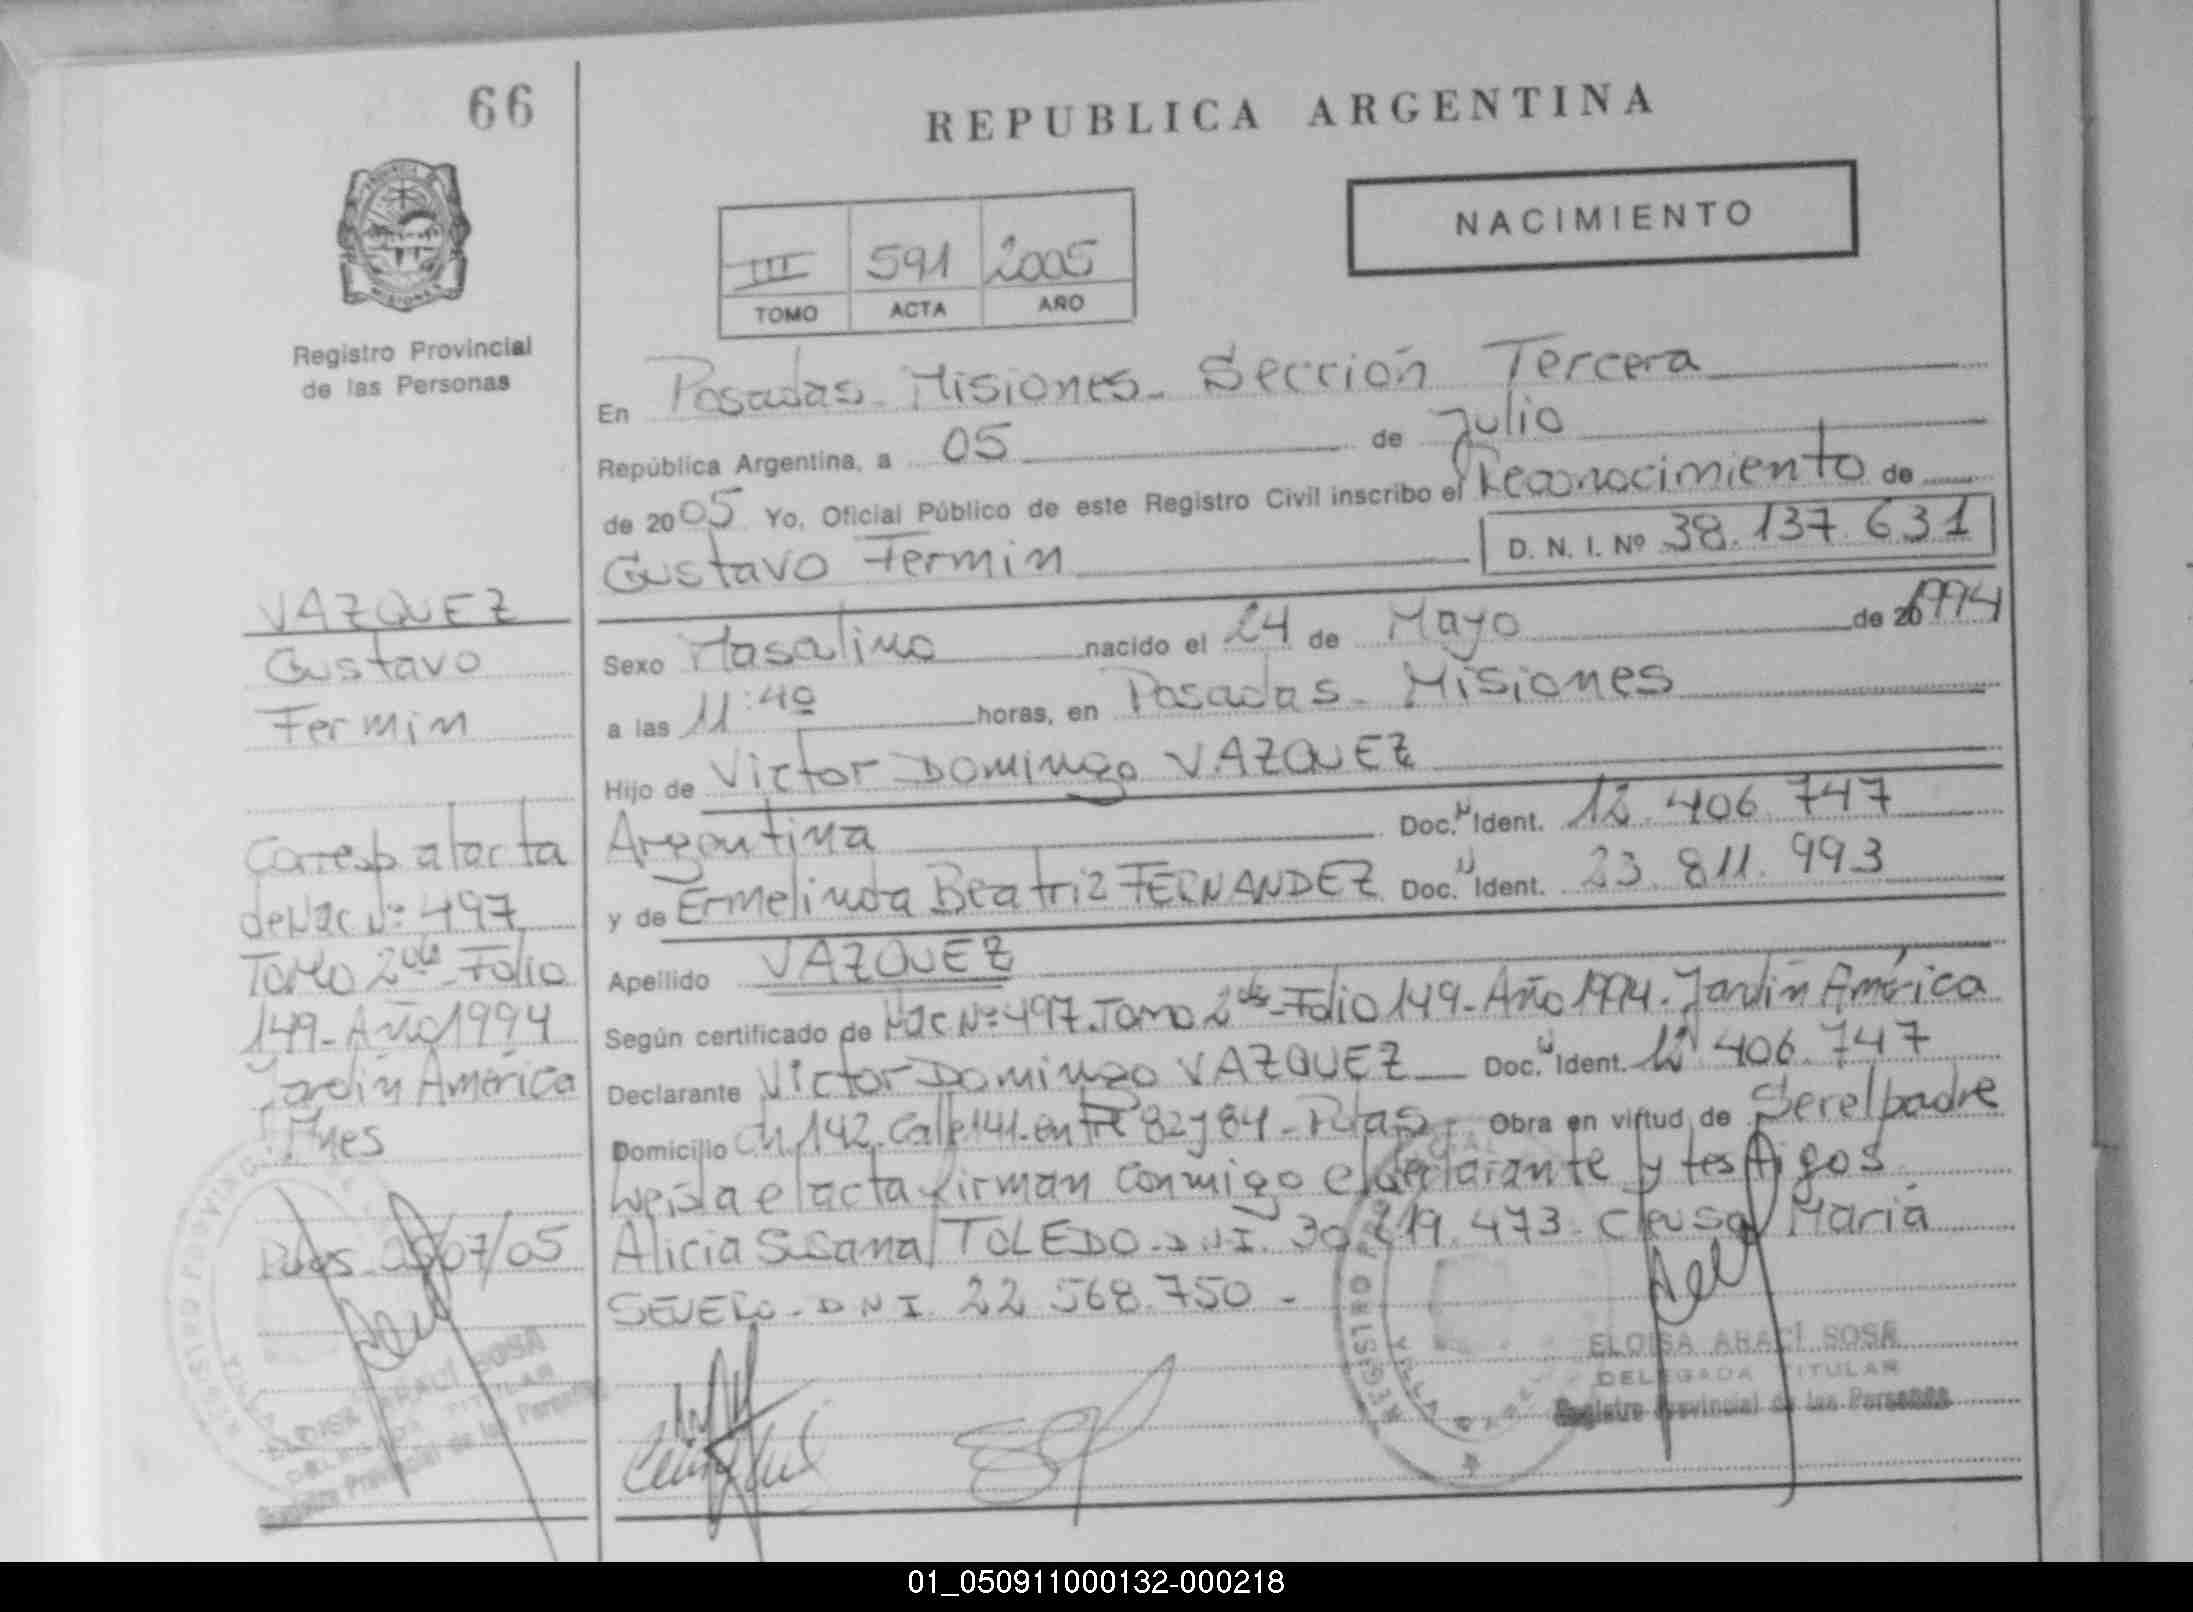 66
REPUBLICA ARGENTINA
NACIMIENTO
III 591 2005
TOMO ACTA AÑO
MISIONES
Registro Provincial
de las Personas
En Posadas - Misiones - Sección Tercera
República Argentina, a 05 de Julio
de 2005 Yo, Oficial Público de este Registro Civil inscribo el Reconocimiento de
Gustavo Fermin D. N. I. Nº 38.137.631
Sexo Masculino nacido el 24 de Mayo de 1994
a las 11:40 horas, en Posadas - Misiones
Hijo de Victor Domingo VAZQUEZ
Argentina Doc. N Ident. 12.406.747
y de Ermelinda Beatriz FERNANDEZ Doc. N Ident. 23.811.993
Apellido VAZQUEZ
Según certificado de Nac Nº 497. Tomo 2do - Folio 149 - Año 1994. Jardin América
Declarante Victor Domingo VAZQUEZ Doc. N Ident. 12.406.747
Domicilio Ch 142 - Calle 141 - entre 82 y 84 - Pdas - Obra en virtud de Ser el padre
leida el acta firman conmigo el declarante y testigos
Alicia Susana TOLEDO - DNI. 30. 219.473 - Cleusa Maria
SEVERO - DNI 22 568.750 -
VAZQUEZ
Gustavo
Fermin
Corresp al acta
de Nac Nº 497
Tomo 2do - Folio
149 - Año 1994
Jardin América
Mnes
Pdas 05/07/05
ELOISA ARACÍ SOSA
DELEGADA TITULAR
Registro Provincial de las Personas
ELOISA ARACÍ SOSA
DELEGADA TITULAR
Registro Provincial de las Personas
01_050911000132-000218